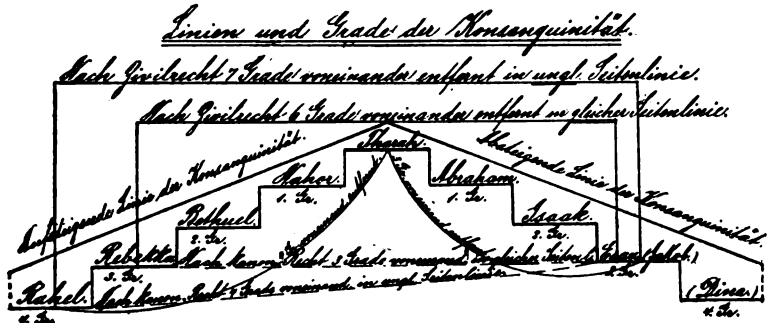 Linien und Grade der Konsanguinität.
Nach Zivilrecht 7 Grade voneinander entfernt in ungl. Seitenlinie.
Nach Zivilrecht 6 Grade voneinander entfernt in gleicher Seitenlinie.
Aufsteigende Linie der Konsanguinität.
Absteigende Linie der Konsanguinität.
Tharah.
Nahor.
1. Gr.
Abraham.
1. Gr.
Bethuel.
2. Gr.
Isaak.
2. Gr.
Rebekka
3. Gr.
Nach kanon. Recht 3 Grade voneinand. Seitenl.
Esau (Jakob.)
3. Gr.
Rahel.
4. Gr.
Nach kanon. Recht 4 Grade voneinand. in ungl. Seitenlinie
(Dina.)
4. Gr.